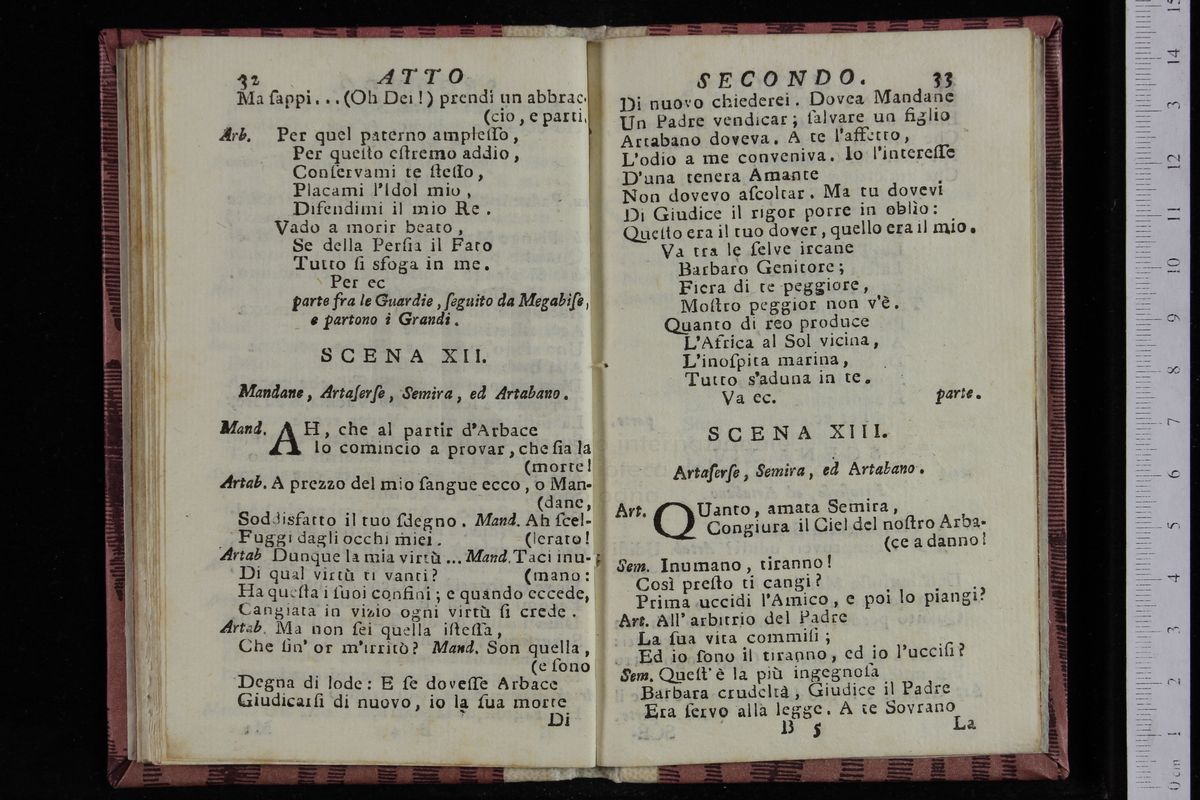 32 ATTO
Ma ſappi... (Oh Dei!) prendi un abbrac-
(cio, e parti.
Arb. Per quel paterno ampleſſo,
Per queſto eſtremo addio,
Conſervami te ſteſſo,
Placami l'Idol mio,
Difendimi il mio Re.
Vado a morir beato,
Se della Perſia il Fato
Tutto ſi sfoga in me.
Per ec
parte fra le Guardie, ſeguito da Megabiſe,
e partono i Grandi.
SCENA XII.
Mandane, Artaſerſe, Semira, ed Artabano.
Mand. AH, che al partir d'Arbace
Io comincio a provar, che ſia la
(morte!
Artab. A prezzo del mio ſangue ecco, o Man-
(dane,
Soddisfatto il tuo ſdegno. Mand. Ah ſcel-
Fuggi dagli occhi miei. (lerato!
Artab Dunque la mia virtù ... Mand. Taci inu-
Di qual virtù ti vanti? (mano:
Ha queſta i ſuoi confini; e quando eccede,
Cangiata in vizio ogni virtù ſi crede.
Artab. Ma non ſei quella iſteſſa,
Che ſin' or m'irritò? Mand. Son quella,
(e ſono
Degna di lode: E ſe doveſſe Arbace
Giudicarſi di nuovo, io la ſua morte
Di
SECONDO. 33
Di nuovo chiederei. Dovea Mandane
Un Padre vendicar; ſalvare un figlio
Artabano doveva. A te l'affetto,
L'odio a me conveniva. Io l'intereſſe
D'una tenera Amante
Non dovevo aſcoltar. Ma tu dovevi
Di Giudice il rigor porre in oblìo:
Queſto era il tuo dover, quello era il mio.
Va tra le ſelve ircane
Barbaro Genitore;
Fiera di te peggiore,
Moſtro peggior non v'è.
Quanto di reo produce
L'Africa al Sol vicina,
L'inoſpita marina,
Tutto s'aduna in te.
Va ec. parte.
SCENA XIII.
Artaſerſe, Semira, ed Artabano.
Art. QUanto, amata Semira,
Congiura il Ciel del noſtro Arba-
(ce a danno!
Sem. Inumano, tiranno!
Così preſto ti cangi?
Prima uccidi l'Amico, e poi lo piangi?
Art. All' arbitrio del Padre
La ſua vita commiſi;
Ed io ſono il tiranno, ed io l'ucciſi?
Sem. Queſt' è la più ingegnoſa
Barbara crudeltà, Giudice il Padre
Era ſervo alla legge. A te Sovrano
B 5 La